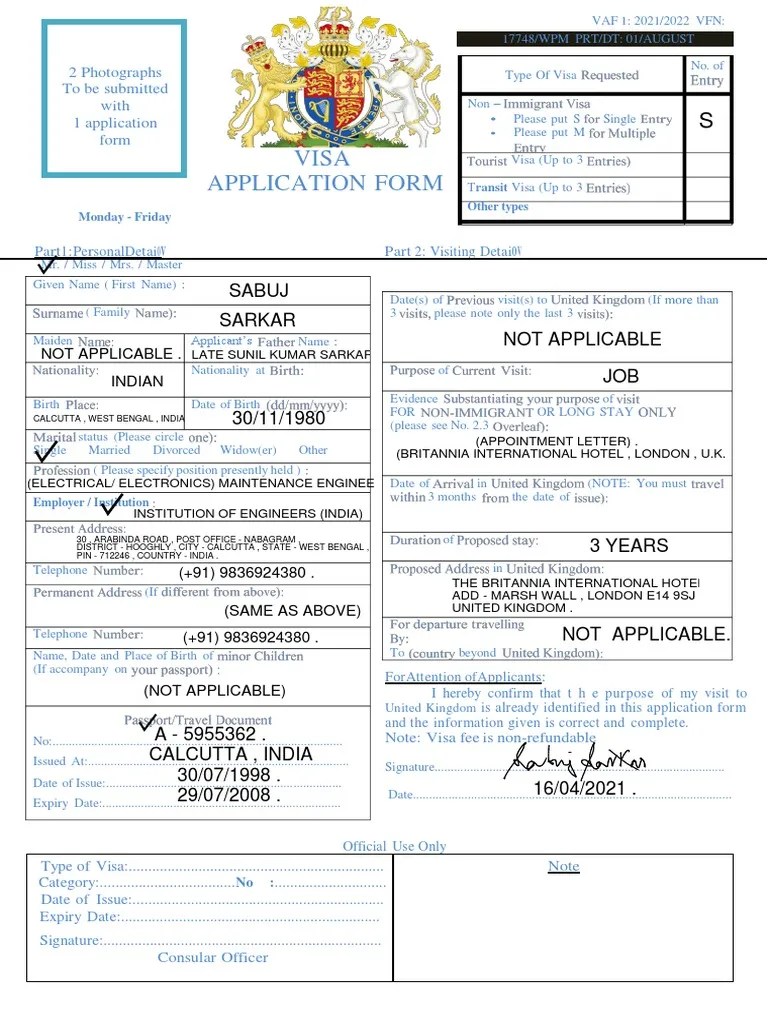 VAF 1: 2021/2022 VFN:
17748/WPM PRT/DT: 01/AUGUST
2 Photographs
To be submitted
with
1 application
form
VISA
APPLICATION FORM
Monday - Friday
Type Of Visa Requested
No. of
Entry
Non – Immigrant Visa
• Please put S for Single Entry
• Please put M for Multiple
Entry
S
Tourist Visa (Up to 3 Entries)
Transit Visa (Up to 3 Entries)
Other types
Part1:PersonalDetai
Mr. / Miss / Mrs. / Master
Given Name ( First Name) :
SABUJ
Surname ( Family Name):
SARKAR
Maiden Name:
NOT APPLICABLE .
Applicant's Father Name :
LATE SUNIL KUMAR SARKAR
Nationality:
INDIAN
Nationality at Birth:
Birth Place:
CALCUTTA , WEST BENGAL , INDIA
Date of Birth (dd/mm/yyyy):
30/11/1980
Marital status (Please circle one):
Single Married Divorced Widow(er) Other
Profession ( Please specify position presently held ) :
(ELECTRICAL/ ELECTRONICS) MAINTENANCE ENGINEE
Employer / Institution :
INSTITUTION OF ENGINEERS (INDIA)
Present Address:
30 , ARABINDA ROAD , POST OFFICE - NABAGRAM ,
DISTRICT - HOOGHLY , CITY - CALCUTTA , STATE - WEST BENGAL ,
PIN - 712246 , COUNTRY - INDIA .
Telephone Number: (+91) 9836924380 .
Permanent Address (If different from above):
(SAME AS ABOVE)
Telephone Number: (+91) 9836924380 .
Name, Date and Place of Birth of minor Children
(If accompany on your passport) :
(NOT APPLICABLE)
Passport/Travel Document
No: A - 5955362 .
Issued At: CALCUTTA , INDIA
Date of Issue: 30/07/1998 .
Expiry Date: 29/07/2008 .
Part 2: Visiting Detai
Date(s) of Previous visit(s) to United Kingdom (If more than
3 visits, please note only the last 3 visits):
NOT APPLICABLE
Purpose of Current Visit:
JOB
Evidence Substantiating your purpose of visit
FOR NON-IMMIGRANT OR LONG STAY ONLY
(please see No. 2.3 Overleaf):
(APPOINTMENT LETTER) .
(BRITANNIA INTERNATIONAL HOTEL , LONDON , U.K.
Date of Arrival in United Kingdom (NOTE: You must travel
within 3 months from the date of issue):
Duration of Proposed stay:
3 YEARS
Proposed Address in United Kingdom:
THE BRITANNIA INTERNATIONAL HOTE
ADD - MARSH WALL , LONDON E14 9SJ
UNITED KINGDOM .
For departure travelling
By:
NOT APPLICABLE.
To (country beyond United Kingdom):
For Attention of Applicants:
I hereby confirm that t h e purpose of my visit to
United Kingdom is already identified in this application form
and the information given is correct and complete.
Note: Visa fee is non-refundable
Signature Sabuj Sarkar
Date 16/04/2021 .
Official Use Only
Type of Visa:
Category: No :
Date of Issue:
Expiry Date:
Signature:
Consular Officer
Note